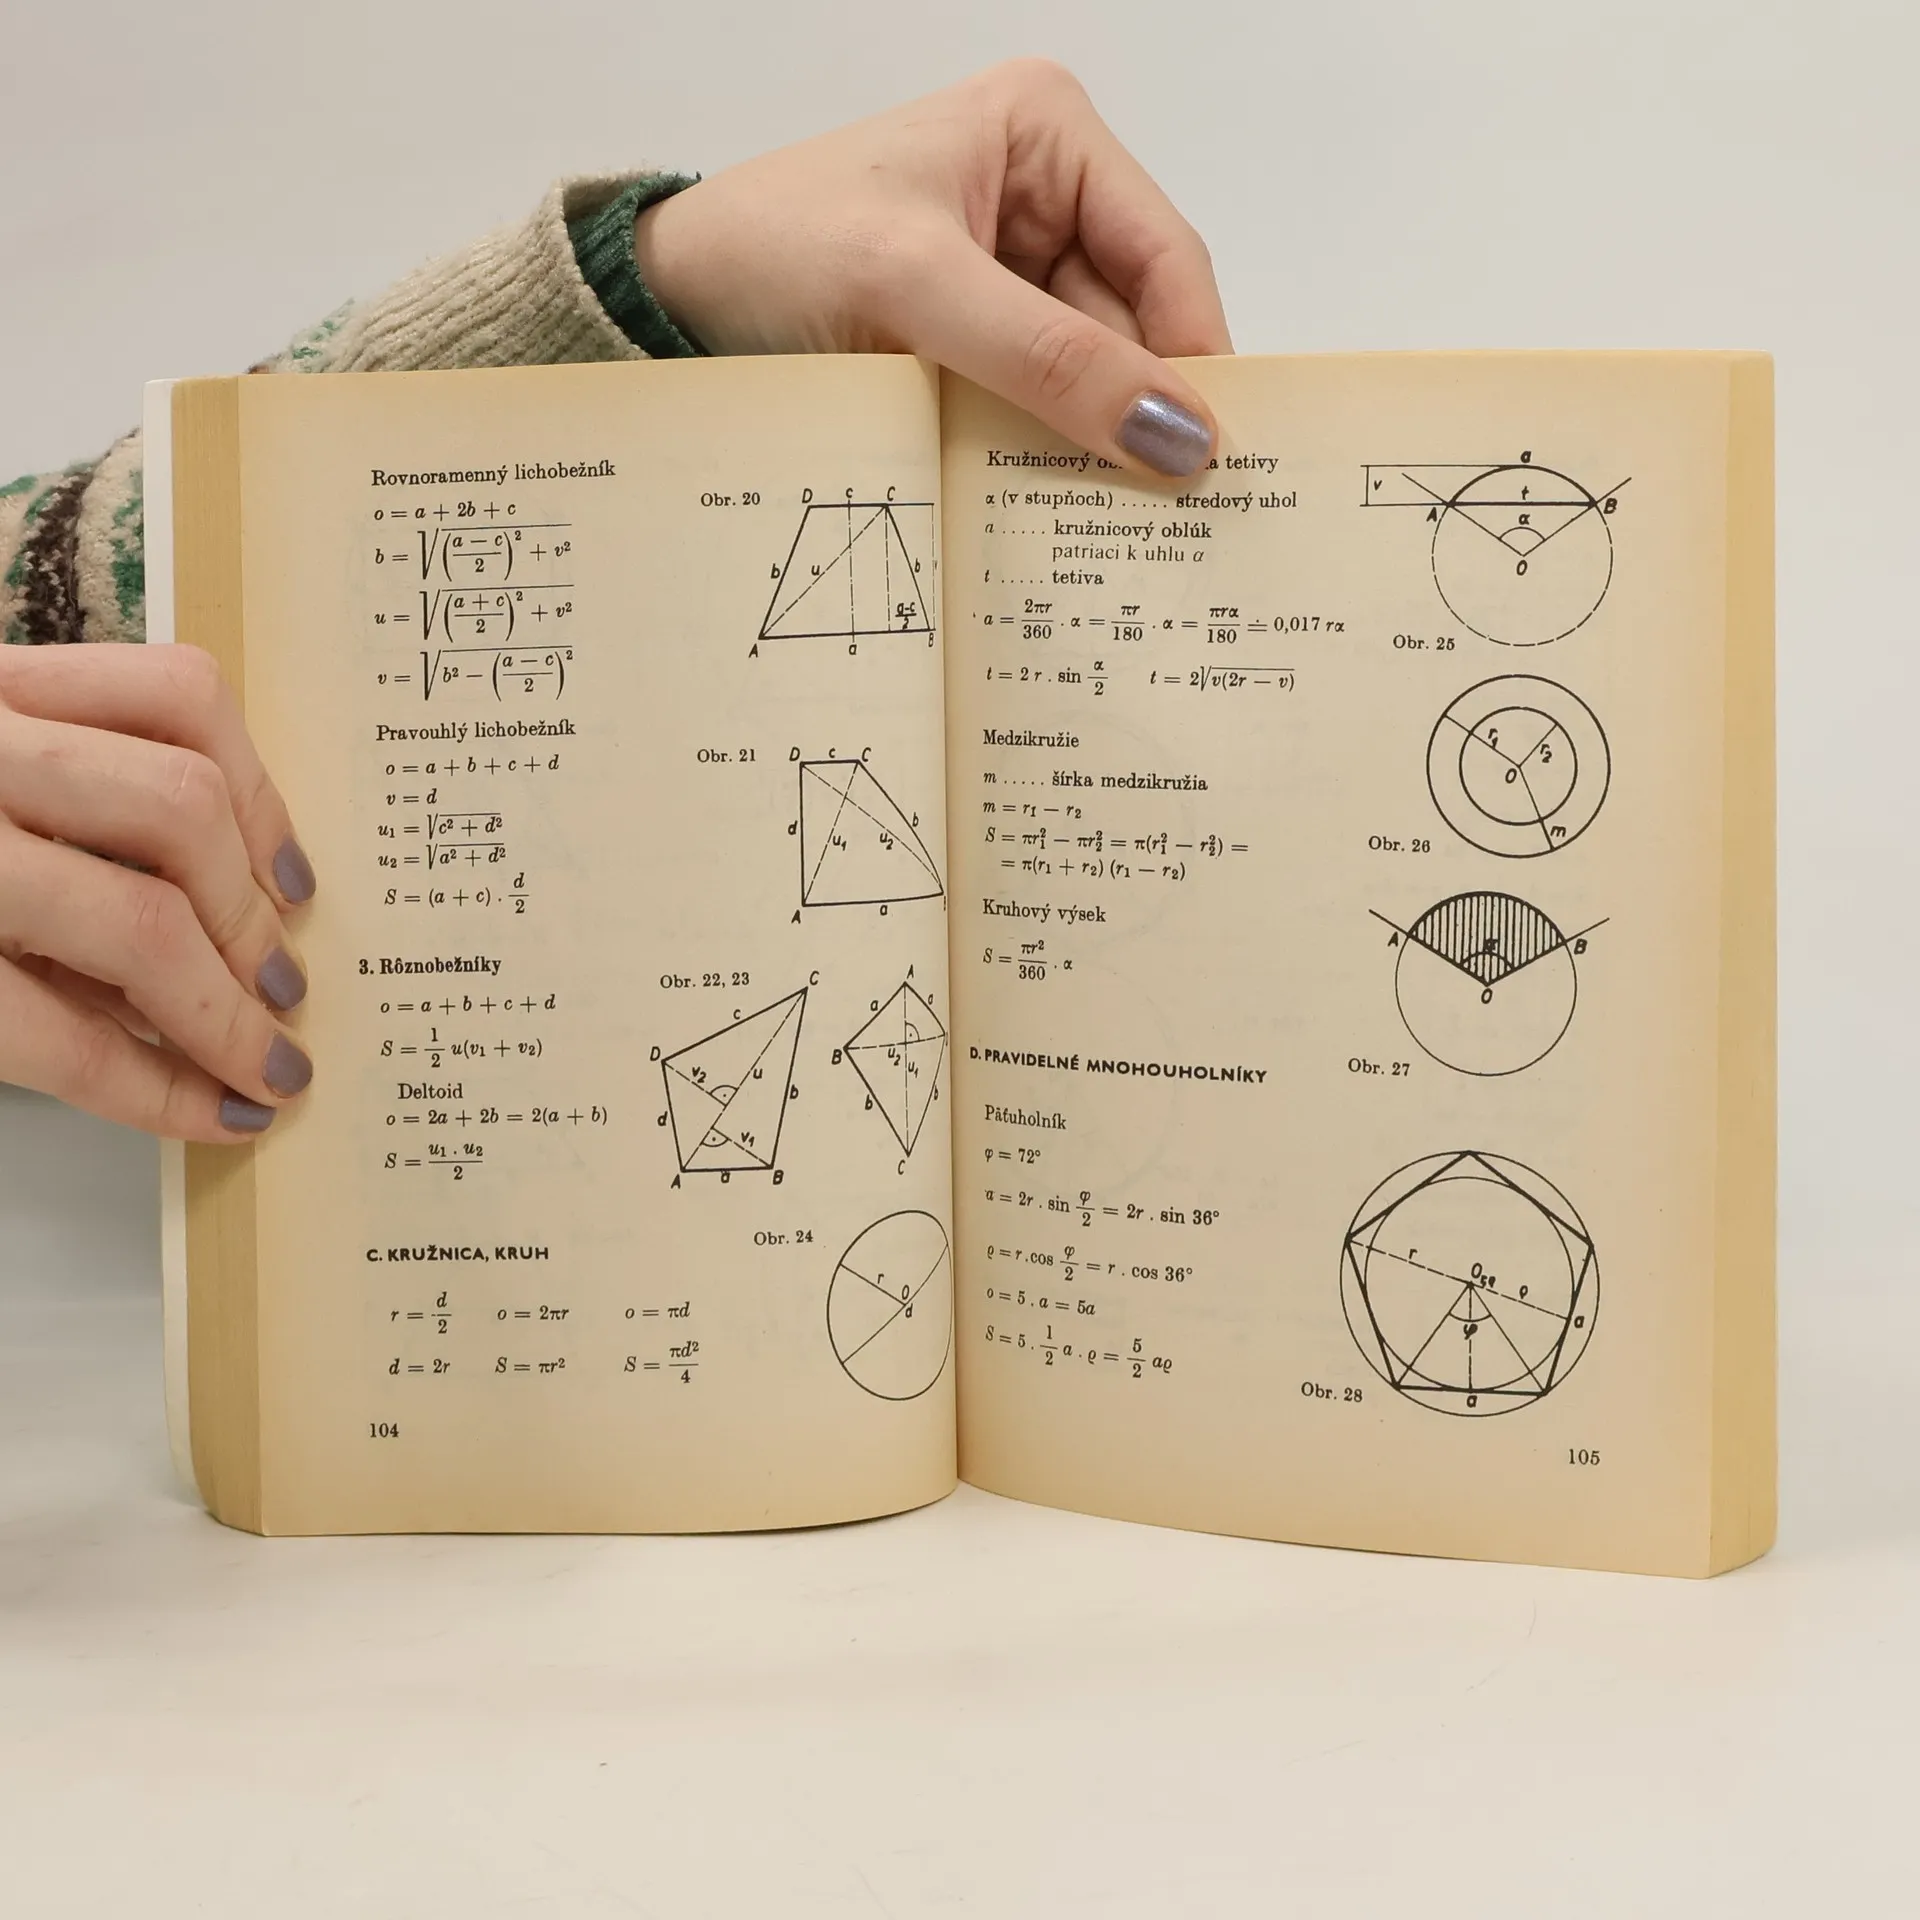 Rovnoramenný lichobežník
o = a + 2b + c
b = √((a − c)/2)² + v²
u = √((a + c)/2)² + v²
v = √b² − ((a − c)/2)²
Obr. 20
D c C
b u b
a-c/2
A a B
Pravouhlý lichobežník
o = a + b + c + d
v = d
u₁ = √c² + d²
u₂ = √a² + d²
S = (a + c) . d/2
Obr. 21
D c C
d u₁ u₂ b
A a
3. Rôznobežníky
o = a + b + c + d
S = 1/2 u(v₁ + v₂)
Deltoid
o = 2a + 2b = 2(a + b)
S = u₁ . u₂/2
Obr. 22, 23
C
c
D
v₂ u
d b
v₁
A a B
A
a a
B u₂ u₁
b b
C
C. KRUŽNICA, KRUH
r = d/2 o = 2πr o = πd
d = 2r S = πr² S = πd²/4
Obr. 24
r O
d
104
Kružnicový tetivy
α (v stupňoch) ..... stredový uhol
a ..... kružnicový oblúk
patriaci k uhlu α
t ..... tetiva
a = 2πr/360 . α = πr/180 . α = πrα/180 ≐ 0,017 rα
t = 2 r . sin α/2 t = 2√v(2r − v)
a
v t
A α B
O
Obr. 25
Medzikružie
m ..... šírka medzikružia
m = r₁ − r₂
S = πr₁² − πr₂² = π(r₁² − r₂²) =
= π(r₁ + r₂) (r₁ − r₂)
r₁ r₂
O
m
Obr. 26
Kruhový výsek
S = πr²/360 . α
A α B
O
Obr. 27
D. PRAVIDELNÉ MNOHOUHOLNÍKY
Päťuholník
φ = 72°
a = 2r . sin φ/2 = 2r . sin 36°
ϱ = r . cos φ/2 = r . cos 36°
o = 5 . a = 5a
S = 5 . 1/2 a . ϱ = 5/2 aϱ
r
O ϱ
φ a
a
Obr. 28
105